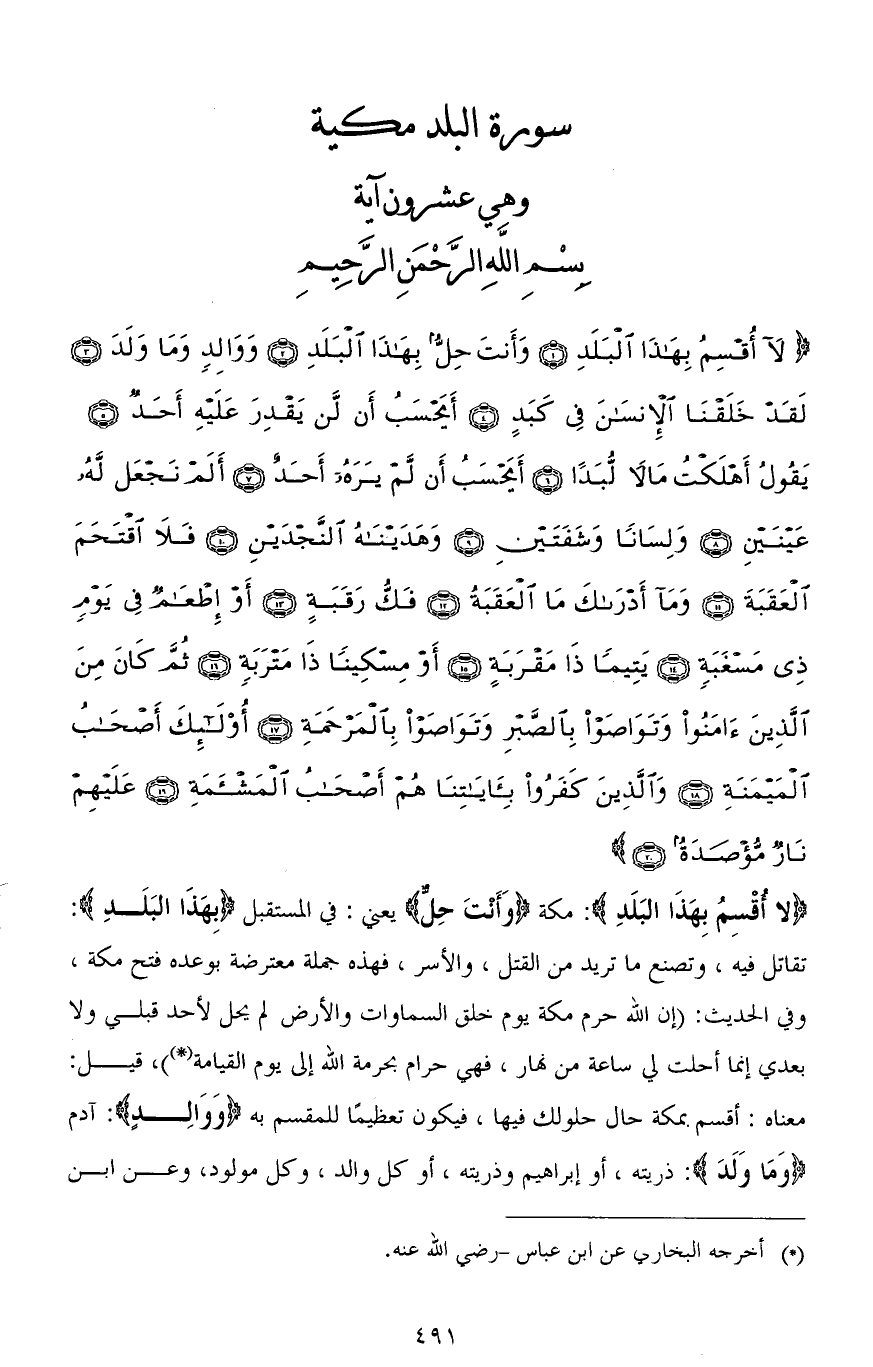 سورة البلد مكية
وهي عشرون آية
بِسْمِ اللَّهِ الرَّحْمَنِ الرَّحِيمِ
﴿ لَآ أُقْسِمُ بِهَٰذَا ٱلْبَلَدِ ۝١ وَأَنتَ حِلٌّۢ بِهَٰذَا ٱلْبَلَدِ ۝٢ وَوَالِدٍ وَمَا وَلَدَ ۝٣
لَقَدْ خَلَقْنَا ٱلْإِنسَٰنَ فِى كَبَدٍ ۝٤ أَيَحْسَبُ أَن لَّن يَقْدِرَ عَلَيْهِ أَحَدٌ ۝٥
يَقُولُ أَهْلَكْتُ مَالًا لُّبَدًا ۝٦ أَيَحْسَبُ أَن لَّمْ يَرَهُۥٓ أَحَدٌ ۝٧ أَلَمْ نَجْعَل لَّهُۥ
عَيْنَيْنِ ۝٨ وَلِسَانًا وَشَفَتَيْنِ ۝٩ وَهَدَيْنَٰهُ ٱلنَّجْدَيْنِ ۝١٠ فَلَا ٱقْتَحَمَ
ٱلْعَقَبَةَ ۝١١ وَمَآ أَدْرَىٰكَ مَا ٱلْعَقَبَةُ ۝١٢ فَكُّ رَقَبَةٍ ۝١٣ أَوْ إِطْعَٰمٌ فِى يَوْمٍ
ذِى مَسْغَبَةٍ ۝١٤ يَتِيمًا ذَا مَقْرَبَةٍ ۝١٥ أَوْ مِسْكِينًا ذَا مَتْرَبَةٍ ۝١٦ ثُمَّ كَانَ مِنَ
ٱلَّذِينَ ءَامَنُوا۟ وَتَوَاصَوْا۟ بِٱلصَّبْرِ وَتَوَاصَوْا۟ بِٱلْمَرْحَمَةِ ۝١٧ أُو۟لَٰٓئِكَ أَصْحَٰبُ
ٱلْمَيْمَنَةِ ۝١٨ وَٱلَّذِينَ كَفَرُوا۟ بِـَٔايَٰتِنَا هُمْ أَصْحَٰبُ ٱلْمَشْـَٔمَةِ ۝١٩ عَلَيْهِمْ
نَارٌ مُّؤْصَدَةٌۢ ۝٢٠ ﴾
﴿لا أُقْسِمُ بِهَذَا البَلَدِ ﴾: مكة ﴿وَأَنْتَ حِلٌّ﴾ يعني : في المستقبل ﴿بِهَذَا البَلَدِ ﴾:
تقاتل فيه ، وتصنع ما تريد من القتل ، والأسر ، فهذه جملة معترضة بوعده فتح مكة ،
وفي الحديث: (إن الله حرم مكة يوم خلق السماوات والأرض لم يحل لأحد قبلي ولا
بعدي إنما أحلت لي ساعة من نهار ، فهي حرام بحرمة الله إلى يوم القيامة(*))، قيل:
معناه : أقسم بمكة حال حلولك فيها ، فيكون تعظيمًا للمقسم به ﴿وَوَالِدٍ﴾: آدم
﴿وَمَا وَلَدَ ﴾: ذريته ، أو إبراهيم وذريته ، أو كل والد ، وكل مولود، وعن ابن
(*) أخرجه البخاري عن ابن عباس -رضي الله عنه.
٤٩١